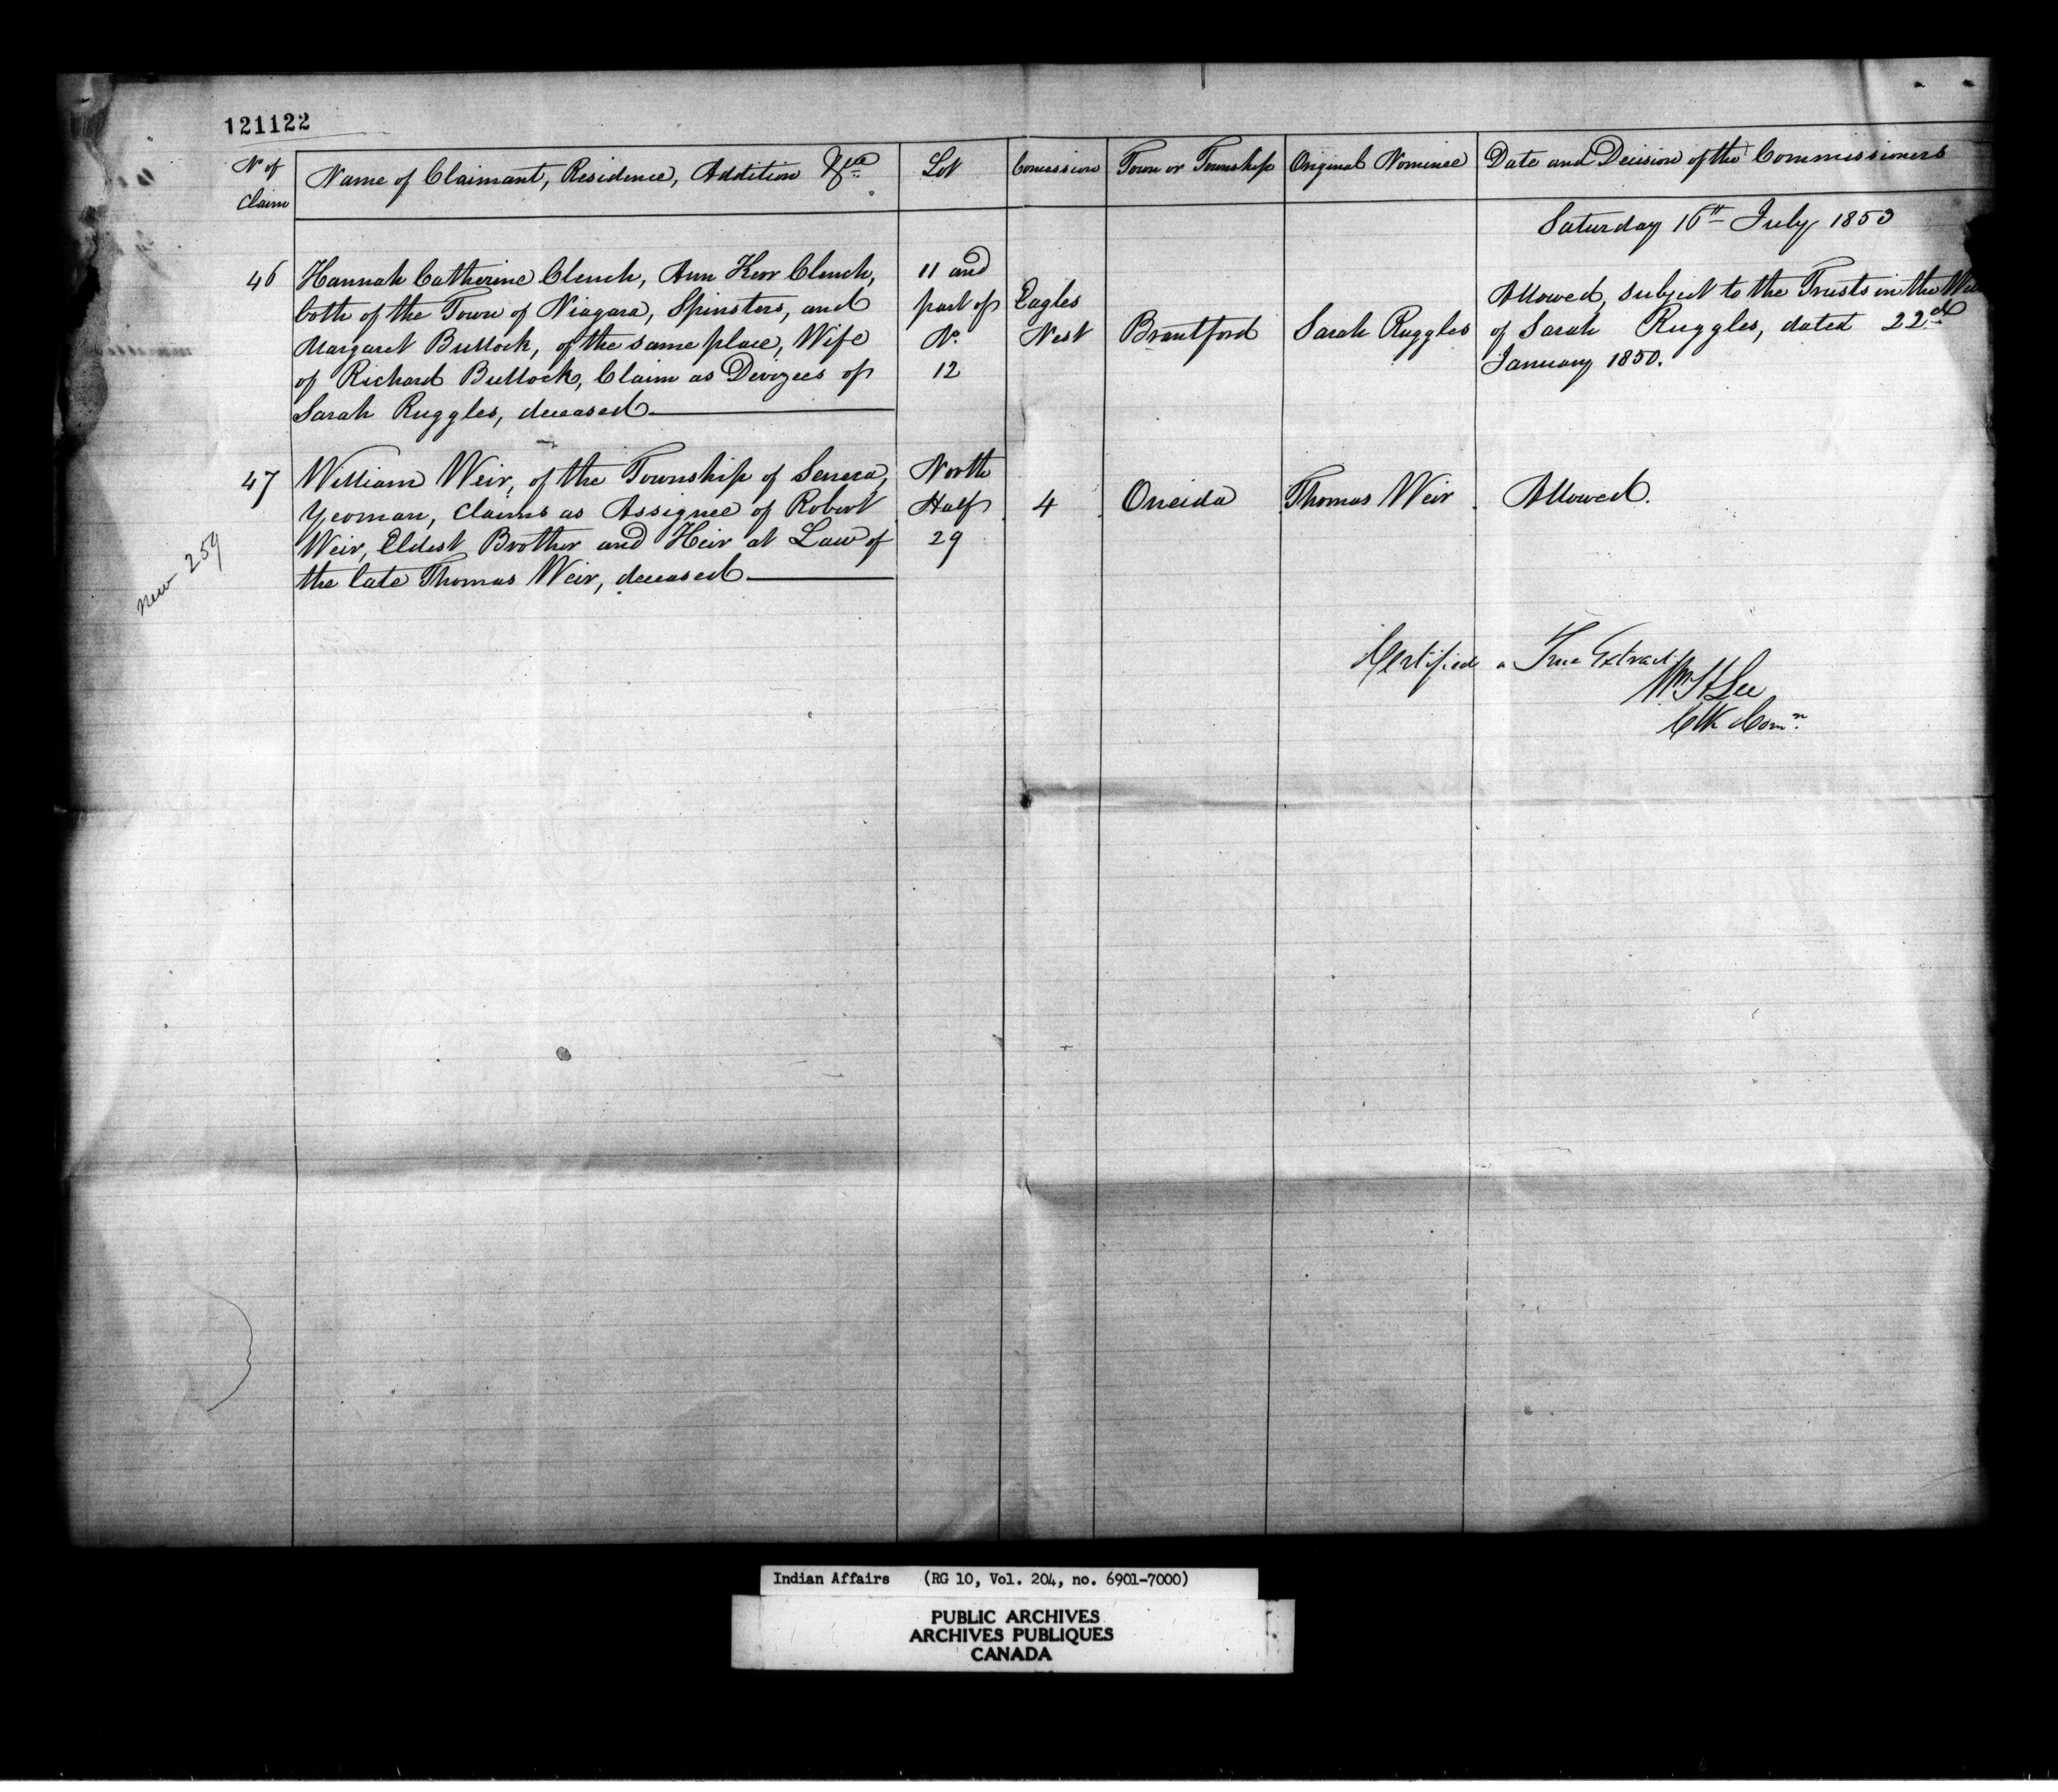 121122
No of Claim | Name of Claimant, Residence, Addition &ca | Lot | Concession | Town or Township | Original Nominee | Date and Decision of the Commissioners
Saturday 16th July 1853
46 | Hannah Catherine Clench, Ann Kerr Clench, | 11 and
both of the Town of Niagara, Spinsters, and | part of | Eagles | Allowed, subject to the Trusts in the
Margaret Bullock, of the same place, Wife | No | Nest | Brantford | Sarah Ruggles | of Sarah Ruggles, dated 22nd
of Richard Bullock, Claim as Devizees of | 12 | January 1850.
Sarah Ruggles, deceased
47 | William Weir, of the Township of Seneca, | North
Yeoman, claims as Assignee of Robert | Half | 4 | Oneida | Thomas Weir | Allowed.
Weir, Eldest Brother and Heir at Law of | 29
the late Thomas Weir, deceased
new 259
Certified a True Extract
Wm H Lee
Clk Comn.
Indian Affairs (RG 10, Vol. 204, no. 6901-7000)
PUBLIC ARCHIVES
ARCHIVES PUBLIQUES
CANADA